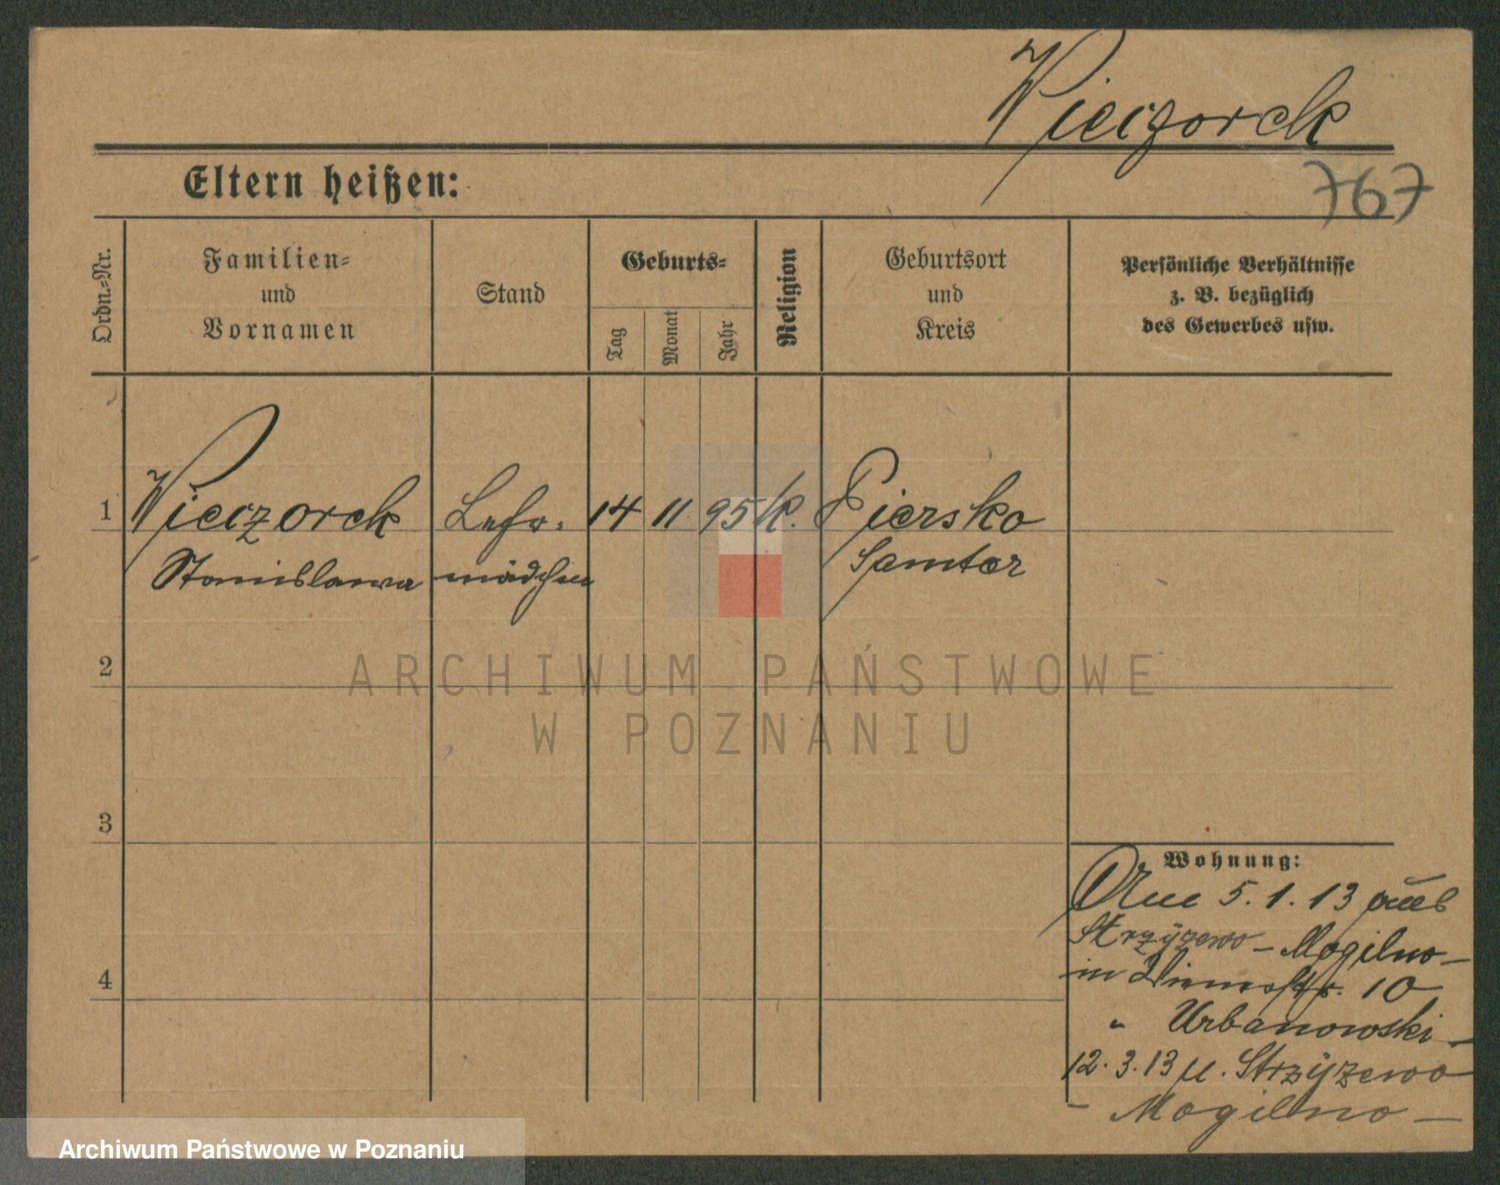 Wieczorek
767
Eltern heißen:
Ordn.-Nr.
Familien-
und
Vornamen
Stand
Geburts-
Tag
Monat
Jahr
Religion
Geburtsort
und
Kreis
Persönliche Verhältnisse
z. B. bezüglich
des Gewerbes usw.
1 Wieczorek 14 11 95 k. Piersko
Stanislawa mädchen Samter
2
ARCHIWUM PAŃSTWOWE
W POZNANIU
3
4
Wohnung:
5.1.13
Strzyzewo - Mogilno -
in 10
" Urbanowski -
12.3.13 n. Strzyzewo
- Mogilno -
Archiwum Państwowe w Poznaniu